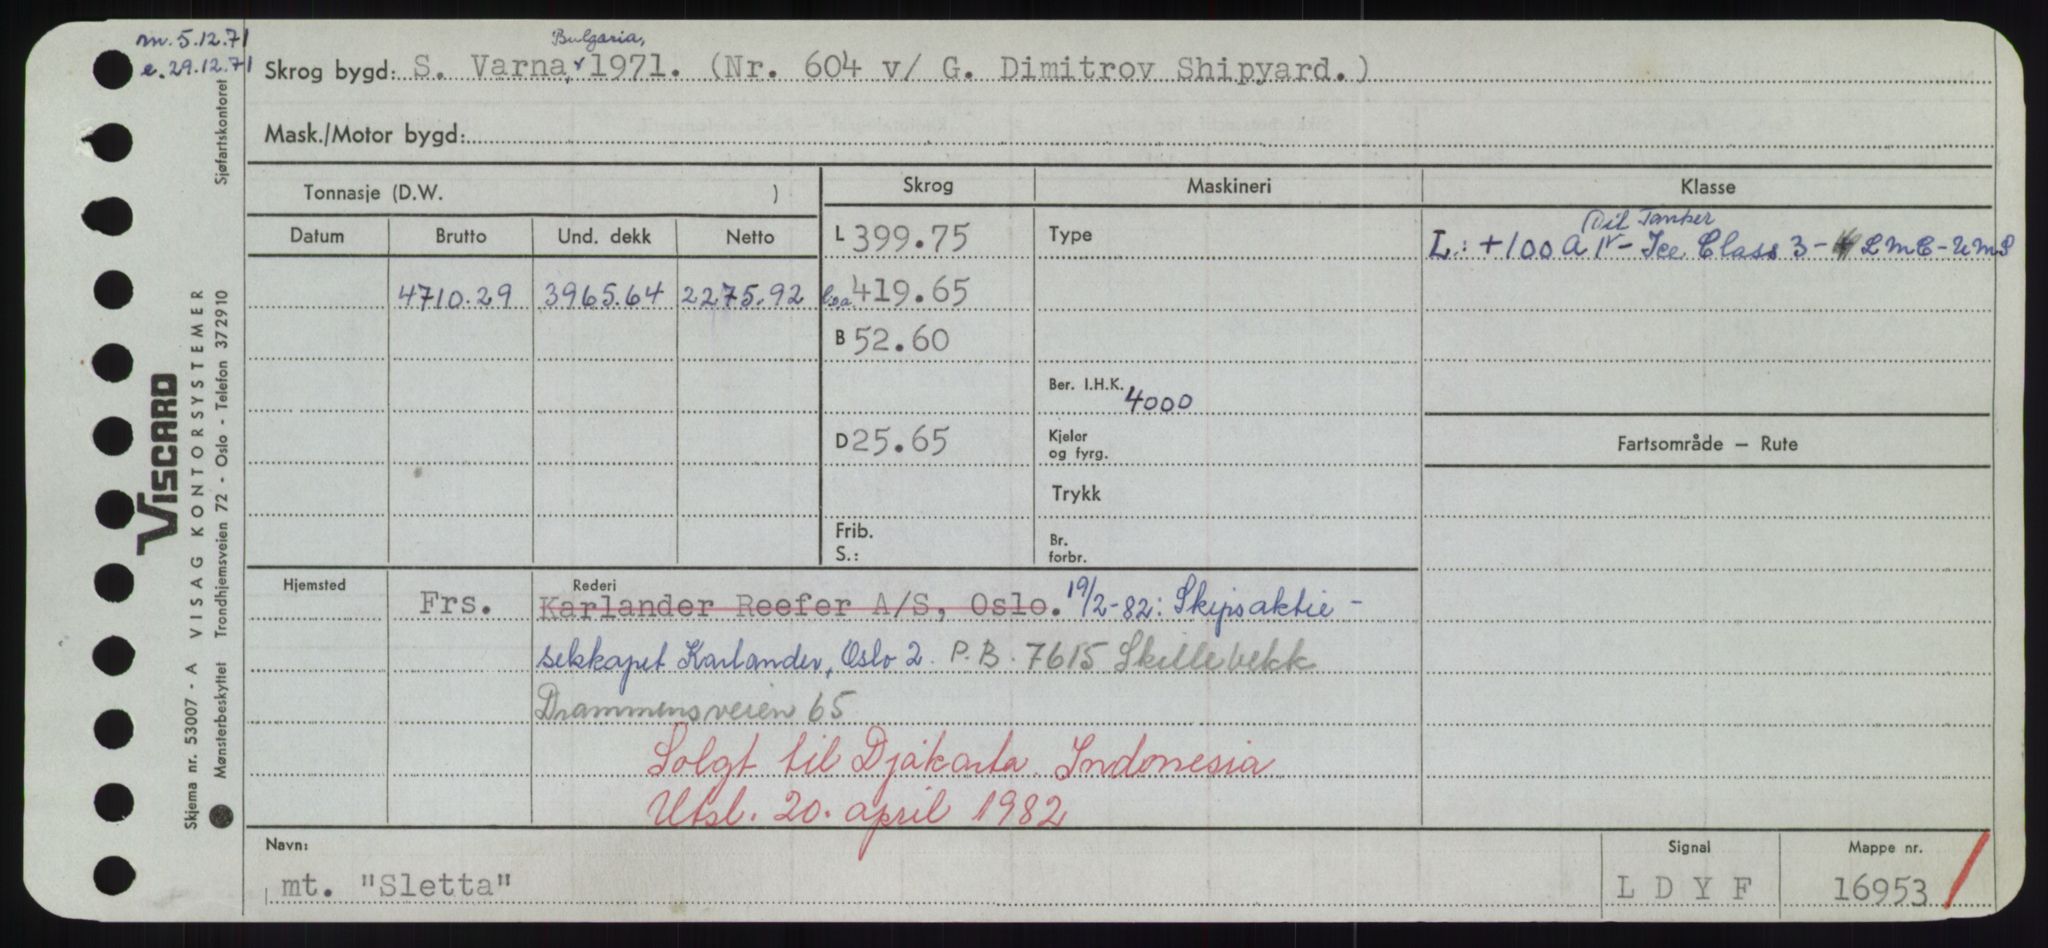 m. 5.12.71
e. 29.12.71
Bulgaria,
Skrog bygd: S. Varna, 1971. (Nr. 604 v/ G. Dimitrov Shipyard.)
Mask./Motor bygd:
Tonnasje (D.W. )
Skrog Maskineri Klasse
Datum Brutto Und. dekk Netto
L 399.75 Type
Oil Tanker
L: +100 A 1 - Ice Class 3 - LMC - UMS
4710.29 3965.64 2275.92 loa 419.65
B 52.60
Ber. I.H.K. 4000
D 25.65
Kjeler
og fyrg.
Fartsområde — Rute
Trykk
Frib.
S.:
Br.
forbr.
Hjemsted Rederi
Frs. Karlander Reefer A/S, Oslo. 19/2-82: Skipsaktie-
selskapet Karlander, Oslo 2. P.B. 7615 Skillebekk
Drammensveien 65
Solgt til Djakarta. Indonesia
Utsl. 20. april 1982
Navn: Signal Mappe nr.
mt. "Sletta" LDYF 16953
VISCARD
Skjema nr. 53007 - A VISAG KONTORSYSTEMER
Mønsterbeskyttet Trondhjemsveien 72 - Oslo - Telefon 372910 Sjøfartskontoret